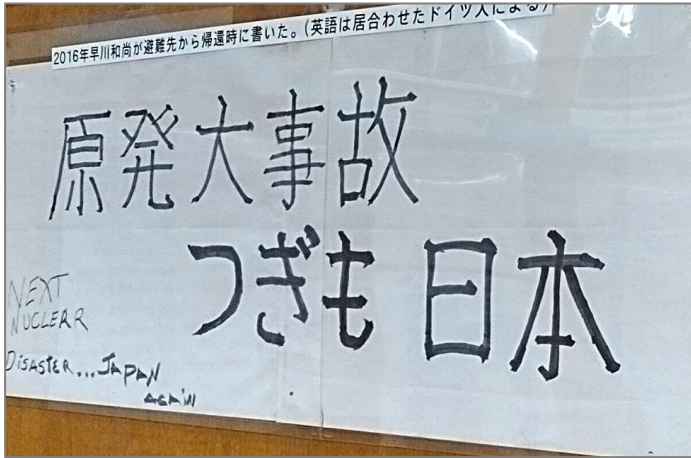 2016年早川和尚が避難先から帰還時に書いた。(英語は居合わせたドイツ人による)
原発大事故
つぎも日本
NEXT
NUCLEAR
DISASTER...JAPAN
AGAIN